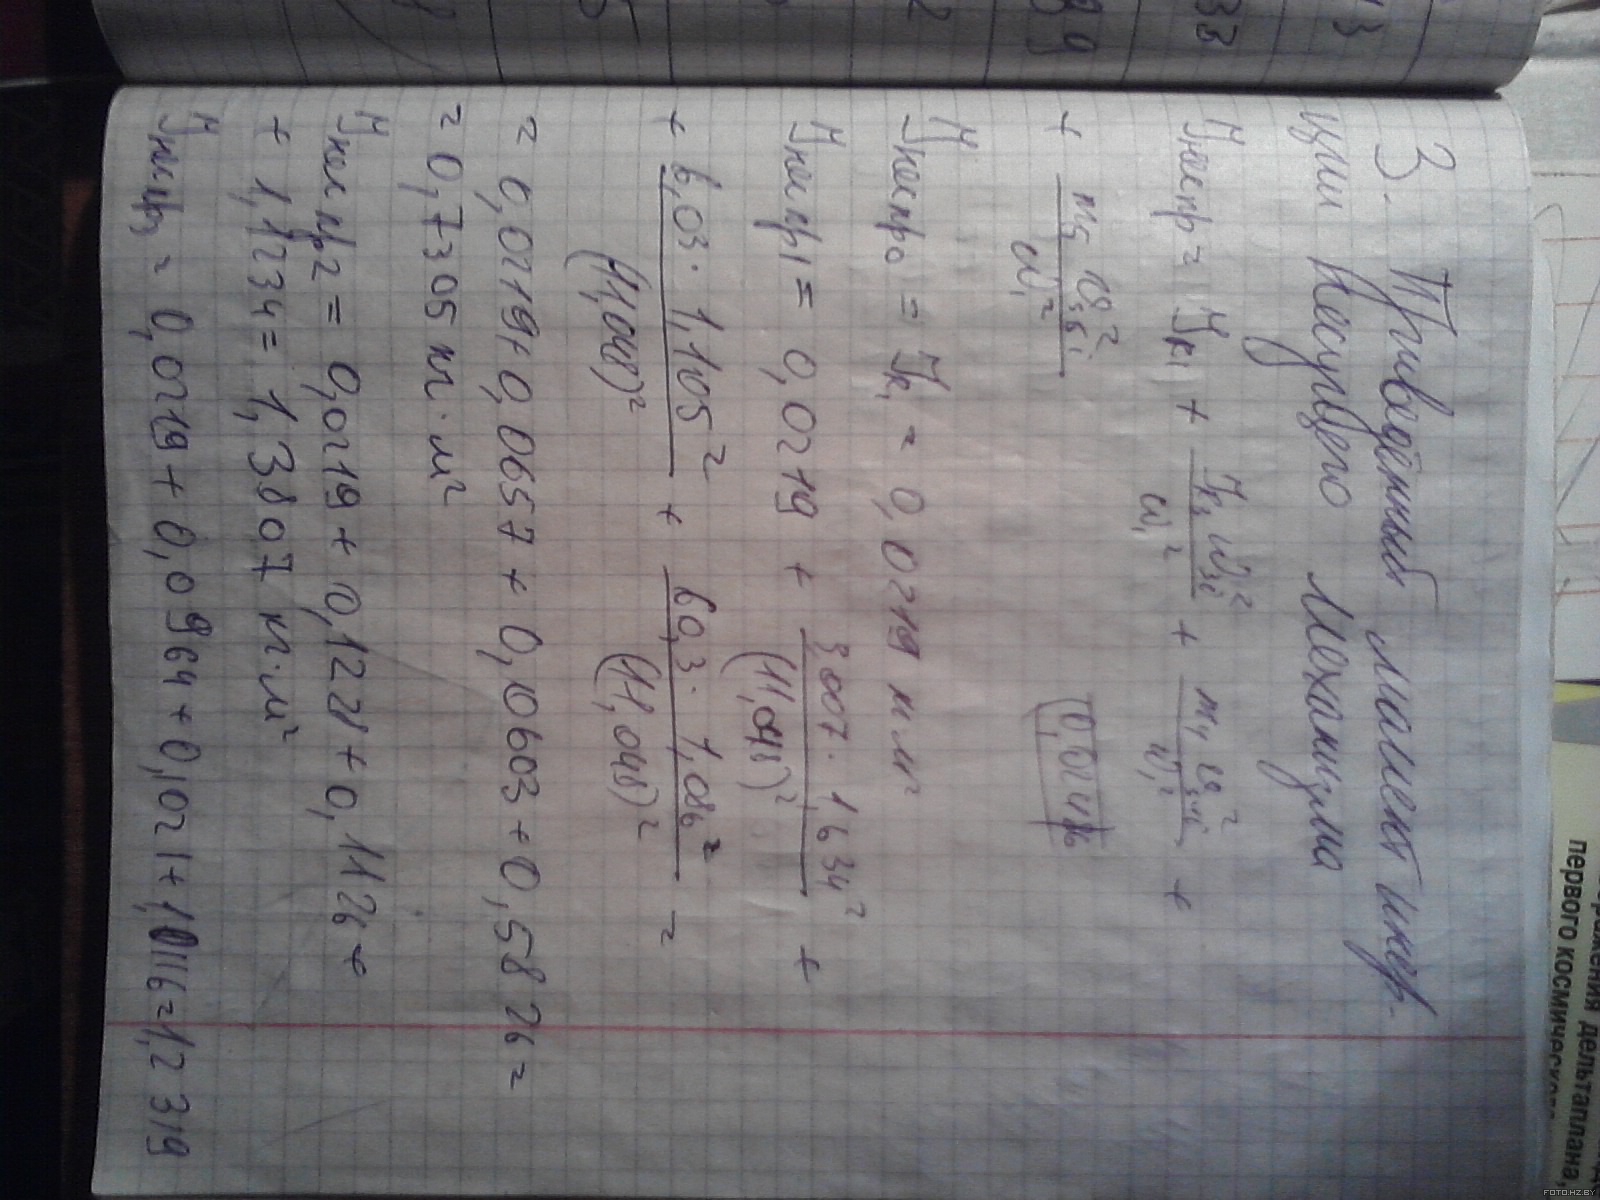 3. Приведённый момент инер-
ции несущего механизма
Jнес пр = Jк1 + Jк3 ω3i² / ω1² + m4 υs4i² / ω1² +
+ m5 υs5i² / ω1²
Jнес пр0 = Jк1 = 0,0219 кг м²
Jнес пр1 = 0,0219 + 3,007 · 1,634² / (11,048)² +
+ 6,03 · 1,105² / (11,048)² + 60,3 · 1,086² / (11,048)² =
= 0,0219 + 0,0657 + 0,0603 + 0,5826 =
= 0,7305 кг·м²
Jнес пр2 = 0,0219 + 0,1228 + 0,1126 +
+ 1,1234 = 1,3807 кг·м²
Jнес пр3 = 0,0219 + 0,0964 + 0,1021 + 1,0116 = 1,2319
38
39
2
5
первого космического
дельтаплана,
FOTO.HZ.BY